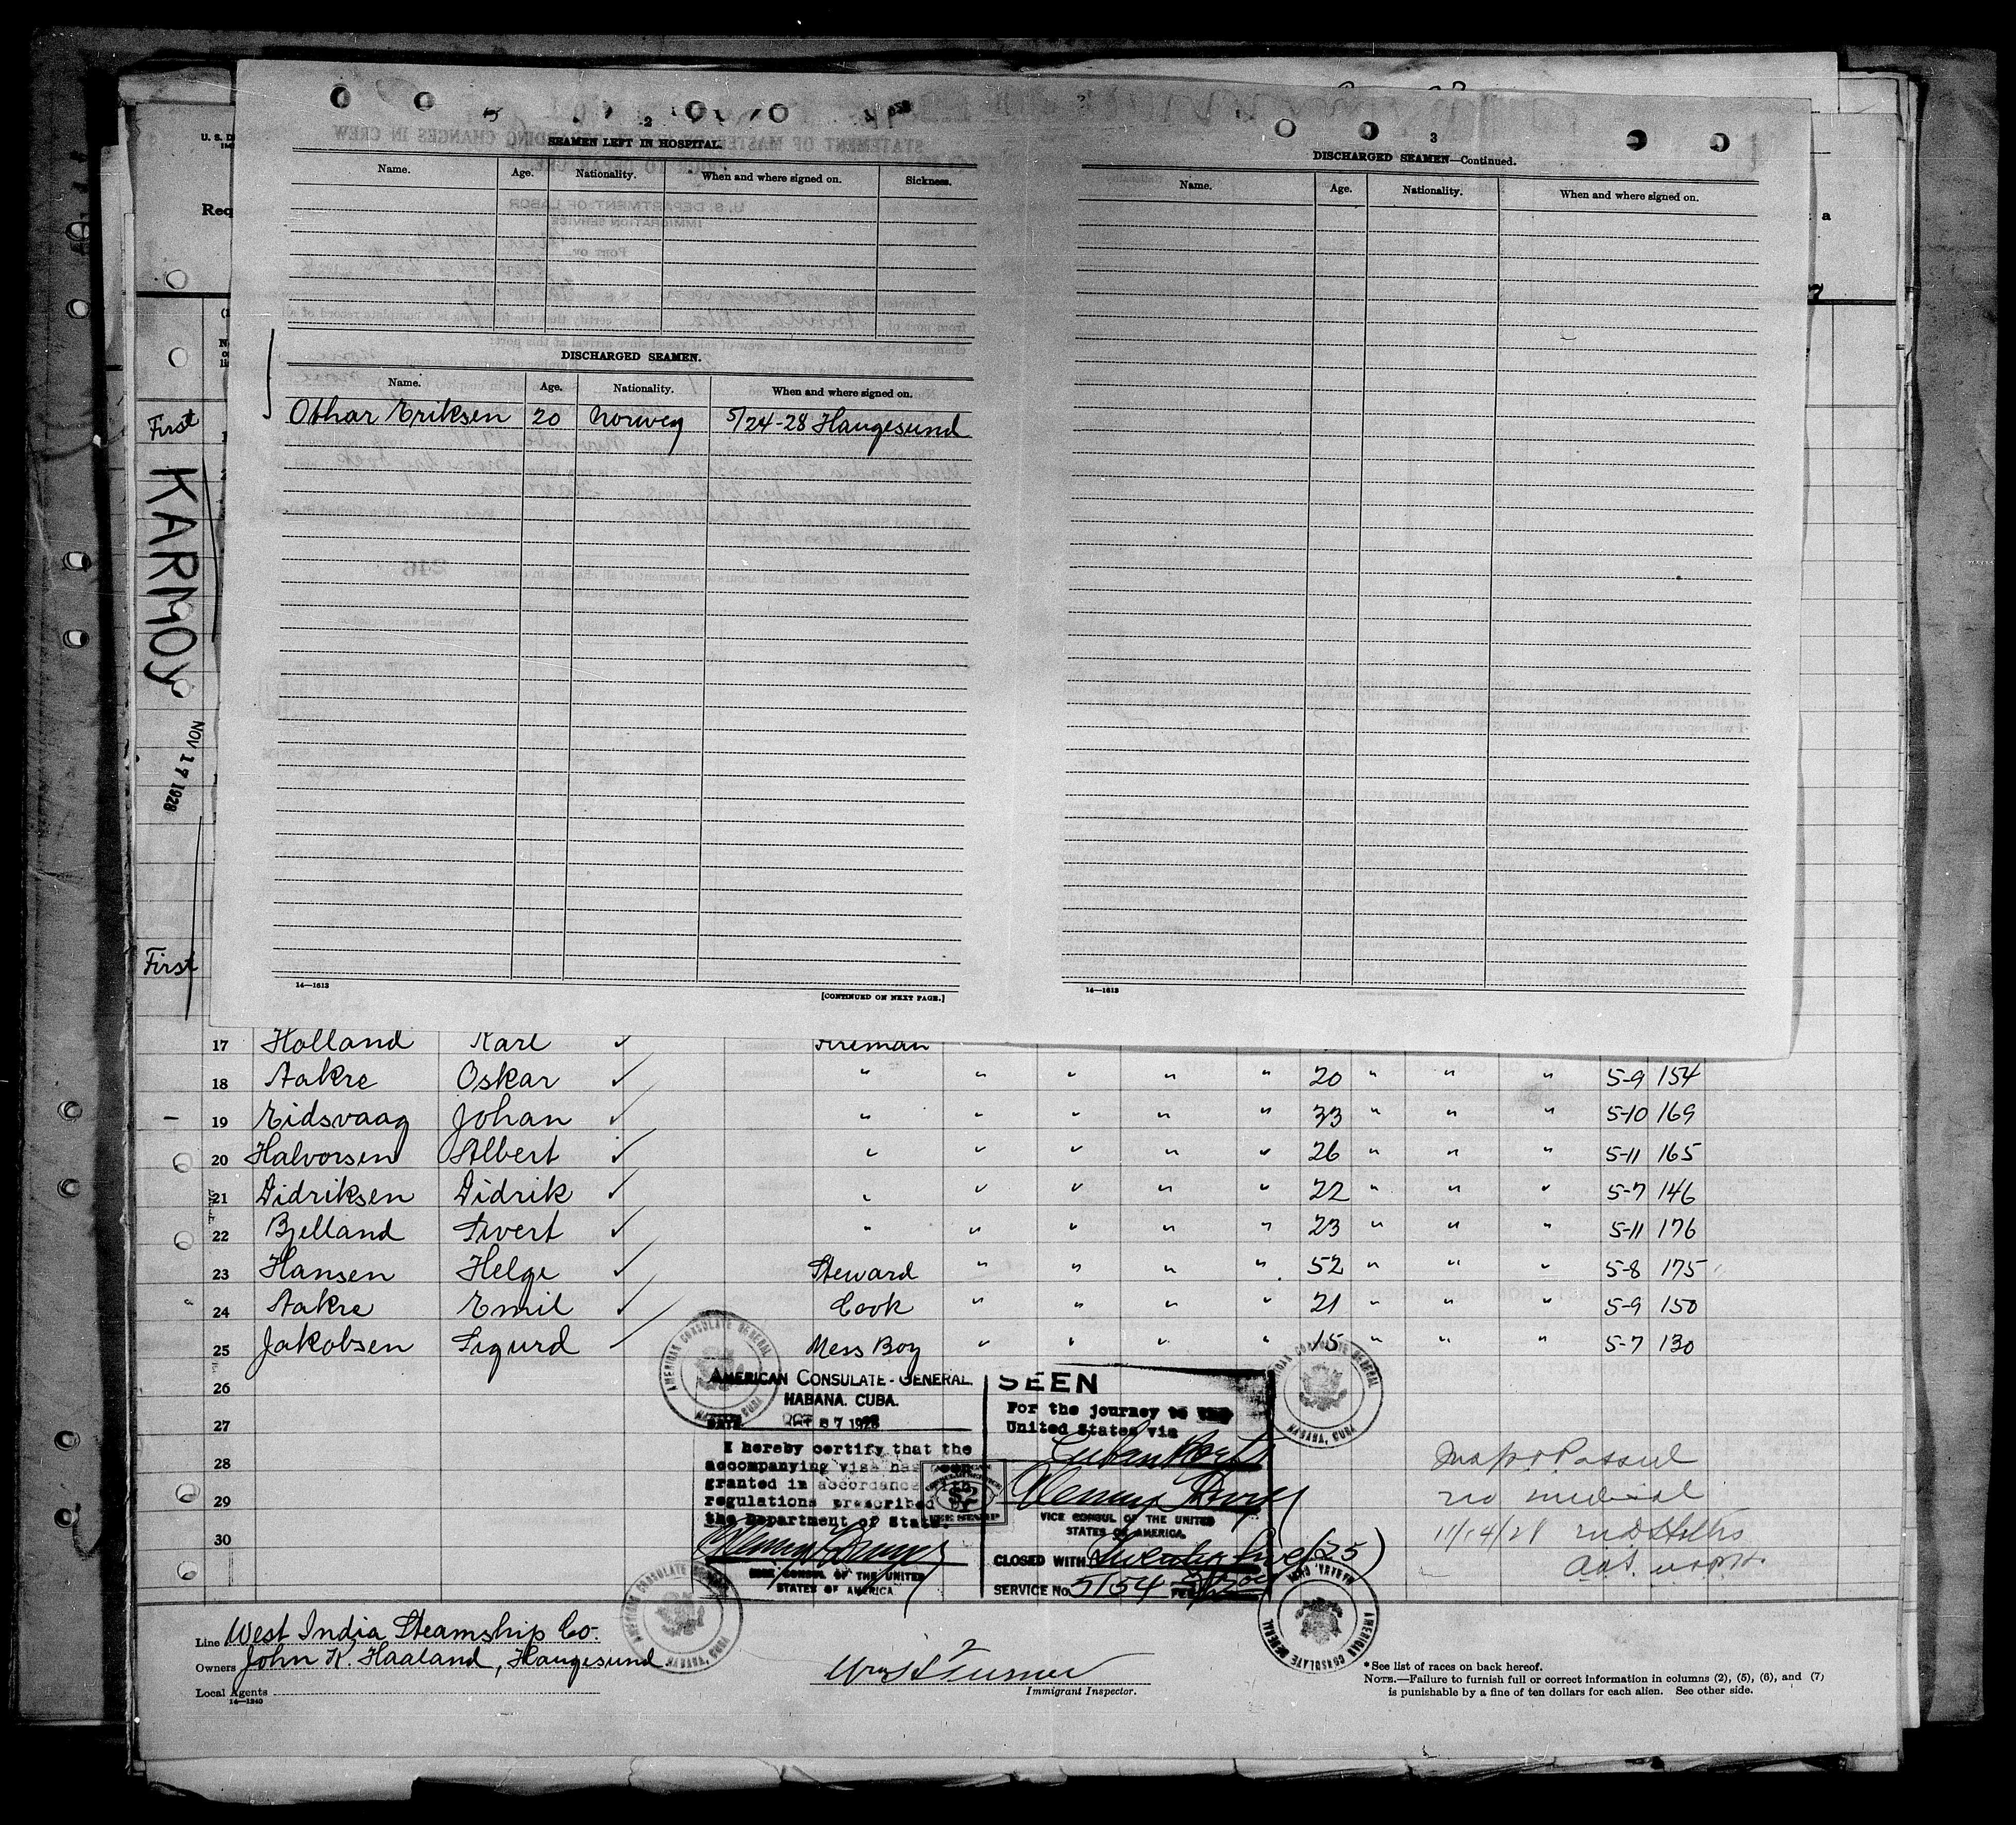 2
SEAMEN LEFT IN HOSPITAL.
Name. Age. Nationality. When and where signed on. Sickness.
DISCHARGED SEAMEN.
Name. Age. Nationality. When and where signed on.
Othar Eriksen 20 Norweg 5/24-28 Haugesund
14—1613
[CONTINUED ON NEXT PAGE.]
3
DISCHARGED SEAMEN—Continued.
Name. Age. Nationality. When and where signed on.
14—1613
U. S. D
Req
a
First
KARMOY
NOV 17 1928
First
17 Holland Karl ✓ Fireman
18 Aakre Oskar ✓ " " " " " 20 " " " 5-9 154
19 Eidsvaag Johan ✓ " " " " " 33 " " " 5-10 169
20 Halvorsen Albert ✓ " " " " " 26 " " " 5-11 165
21 Didriksen Didrik ✓ " " " " " 22 " " " 5-7 146
22 Bjelland Sivert ✓ " " " " " 23 " " " 5-11 176
23 Hansen Helge ✓ Steward " " " " 52 " " " 5-8 175
24 Aakre Emil ✓ Cook " " " " 21 " " " 5-9 150
25 Jakobsen Sigurd ✓ Mess Boy " " " " 15 " " " 5-7 130
26
27
28
29
30
AMERICAN CONSULATE-GENERAL.
HABANA. CUBA.
DATE 1928
I hereby certify that the
accompanying visa has been
granted in accordance with
regulations prescribed by
the Department of State.
VICE CONSUL OF THE UNITED
STATES OF AMERICA
$2
FEE STAMP
SEEN
For the journey to the
United States via
Cuban Ports
VICE CONSUL OF THE UNITED
STATES OF AMERICA.
CLOSED WITH Twenty five (25)
SERVICE No. 5154
AMERICAN CONSULATE GENERAL
HABANA, CUBA
AMERICAN CONSULATE GENERAL
HABANA, CUBA
AMERICAN CONSULATE GENERAL
HABANA, CUBA
AMERICAN CONSULATE GENERAL
HABANA, CUBA
Passed
no medical
11/14/28
Line West India Steamship Co.
Owners John K. Haaland, Haugesund
Local Agents
14—1240
Immigrant Inspector.
*See list of races on back hereof.
NOTE.—Failure to furnish full or correct information in columns (2), (5), (6), and (7)
is punishable by a fine of ten dollars for each alien. See other side.